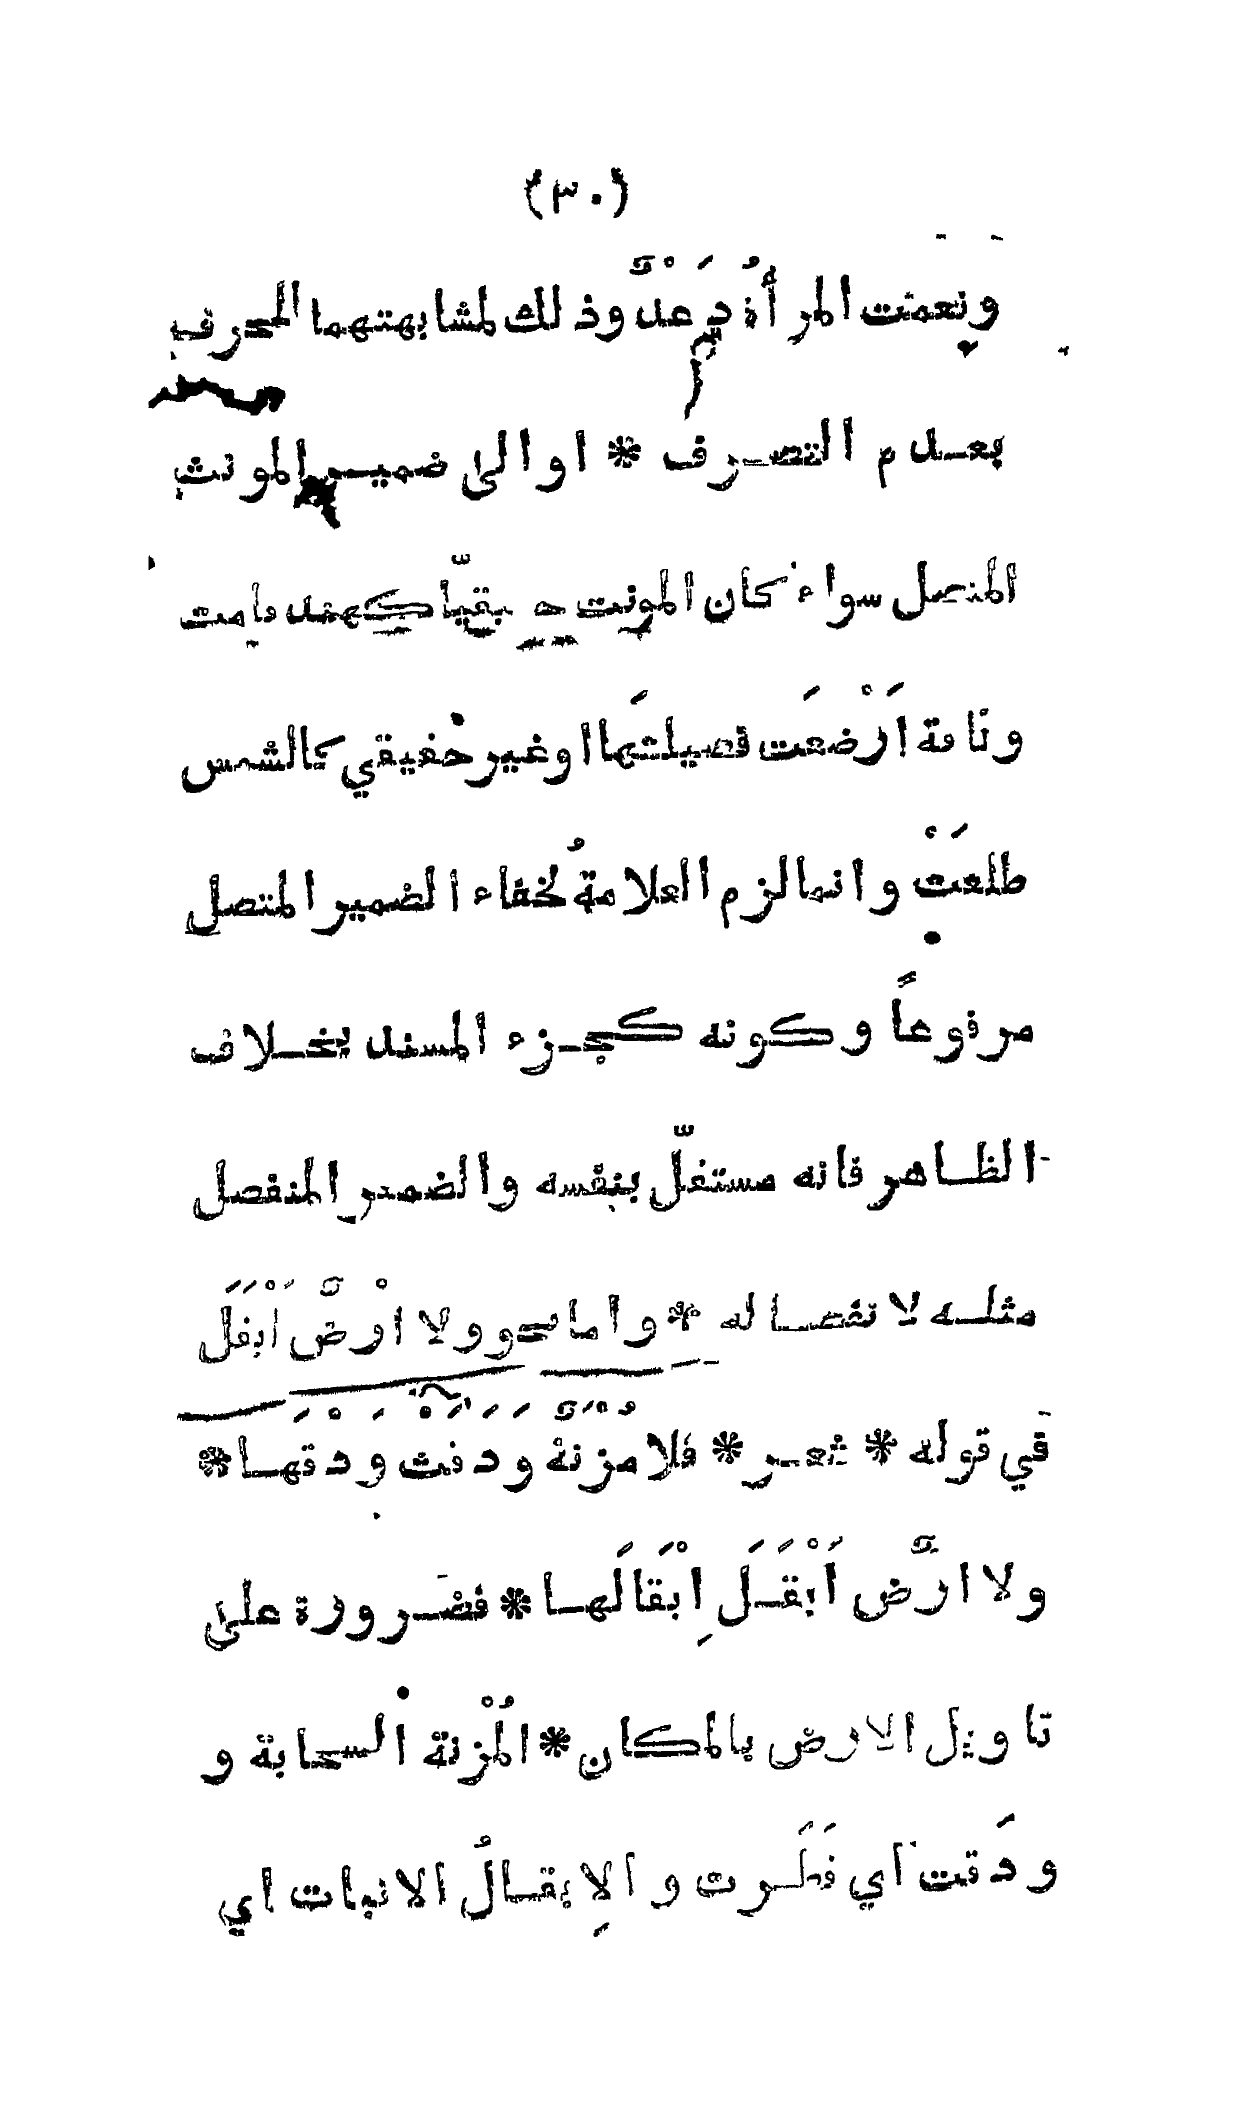 (٣٠)
ونعمت المرأةُ دَعْدٌ وذلك لمشابهتهما الحرف
بعدم التصرف * او الى ضمير المونث
المتصل سواء كان المونث حقيقيّا كهند قامت
وناقة اَرْضعَت فصيلتَها او غير حقيقي كالشمس
طلعَتْ وانما لزم العلامةُ لخفاء الضمير المتصل
مرفوعاً وكونه كجزء المسند بخلاف
الظاهر فانه مستقلّ بنفسه والضمير المنفصل
مثله لانفصاله * واما نحو ولا ارْضٌ اَبْقَلَ
في قوله * شعر * فلا مُزْنَةٌ وَدَقَتْ وَدْقَهَا *
ولا ارْضٌ اَبْقَلَ اِبْقَالَها * فضرورة على
تاويل الارض بالمكان * المُزْنة السحابة و
ودَقت اي قَطَرت والاِبقالُ الانبات اي